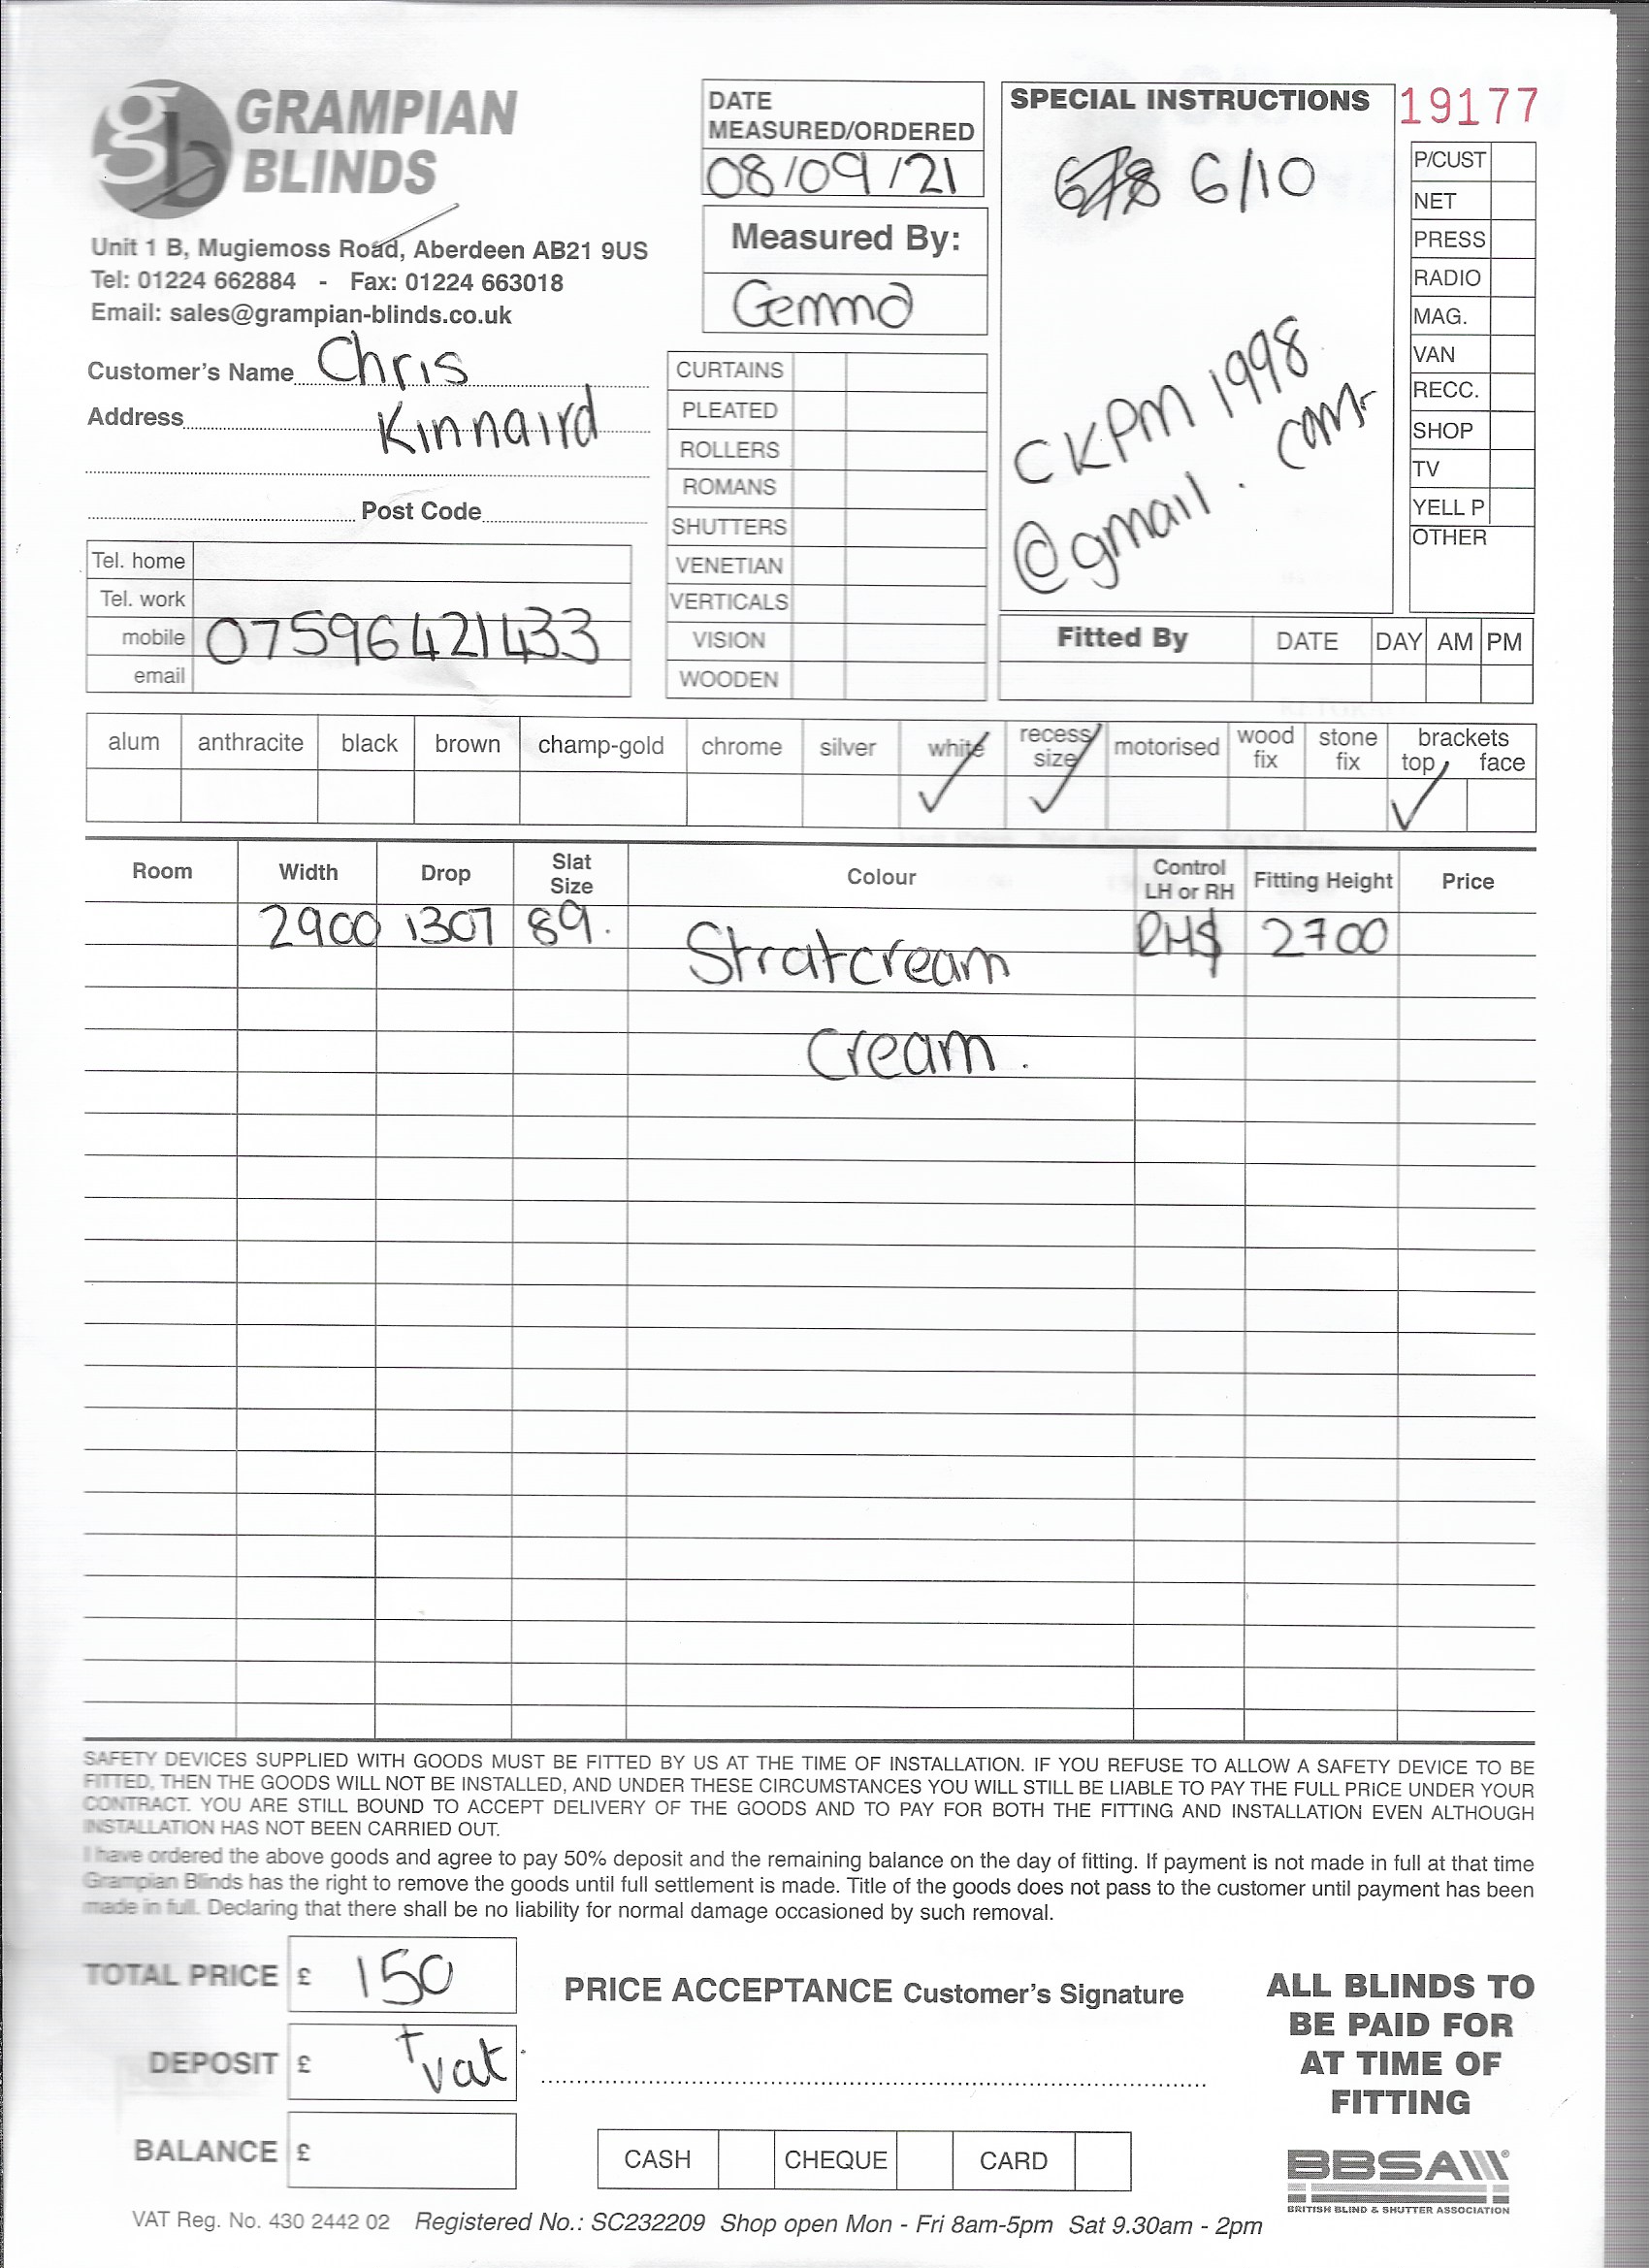 GRAMPIAN
BLINDS
Unit 1 B, Mugiemoss Road, Aberdeen AB21 9US
Tel: 01224 662884 - Fax: 01224 663018
Email: sales@grampian-blinds.co.uk
Customer's Name Chris
Address Kinnaird
Post Code
Tel. home
Tel. work
mobile 07596421433
email
DATE
MEASURED/ORDERED
08/09/21
Measured By:
Gemma
CURTAINS
PLEATED
ROLLERS
ROMANS
SHUTTERS
VENETIAN
VERTICALS
VISION
WOODEN
SPECIAL INSTRUCTIONS
6/10
CKPM 1998
@gmail.com
19177
P/CUST
NET
PRESS
RADIO
MAG.
VAN
RECC.
SHOP
TV
YELL P
OTHER
Fitted By DATE DAY AM PM
alum anthracite black brown champ-gold chrome silver white recess size motorised wood fix stone fix brackets top face
✓ ✓ ✓
Room Width Drop Slat Size Colour Control LH or RH Fitting Height Price
2900 1307 89. Stratcream 2700
Cream.
SAFETY DEVICES SUPPLIED WITH GOODS MUST BE FITTED BY US AT THE TIME OF INSTALLATION. IF YOU REFUSE TO ALLOW A SAFETY DEVICE TO BE
FITTED, THEN THE GOODS WILL NOT BE INSTALLED, AND UNDER THESE CIRCUMSTANCES YOU WILL STILL BE LIABLE TO PAY THE FULL PRICE UNDER YOUR
CONTRACT. YOU ARE STILL BOUND TO ACCEPT DELIVERY OF THE GOODS AND TO PAY FOR BOTH THE FITTING AND INSTALLATION EVEN ALTHOUGH
INSTALLATION HAS NOT BEEN CARRIED OUT.
I have ordered the above goods and agree to pay 50% deposit and the remaining balance on the day of fitting. If payment is not made in full at that time
Grampian Blinds has the right to remove the goods until full settlement is made. Title of the goods does not pass to the customer until payment has been
made in full. Declaring that there shall be no liability for normal damage occasioned by such removal.
TOTAL PRICE £ 150
DEPOSIT £ + vat
BALANCE £
PRICE ACCEPTANCE Customer's Signature
CASH CHEQUE CARD
ALL BLINDS TO
BE PAID FOR
AT TIME OF
FITTING
BBSA
BRITISH BLIND & SHUTTER ASSOCIATION
VAT Reg. No. 430 2442 02 Registered No.: SC232209 Shop open Mon - Fri 8am-5pm Sat 9.30am - 2pm